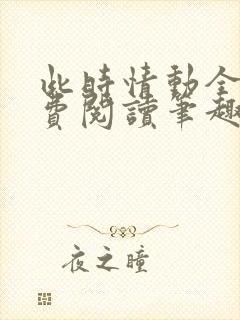 此時情動全
費閱讀筆趣
夜之瞳